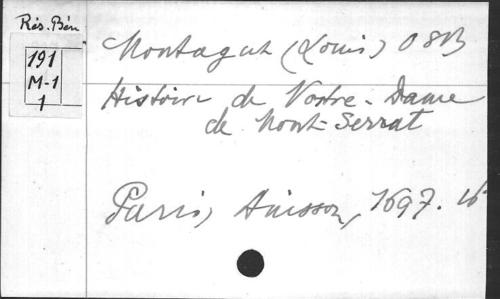 Rés. Bén
191
M-1
1
Montagut (Louis) OSB
Histoire de Nostre-Dame
de Mont-Serrat
Paris, Anisson, 1697. 16